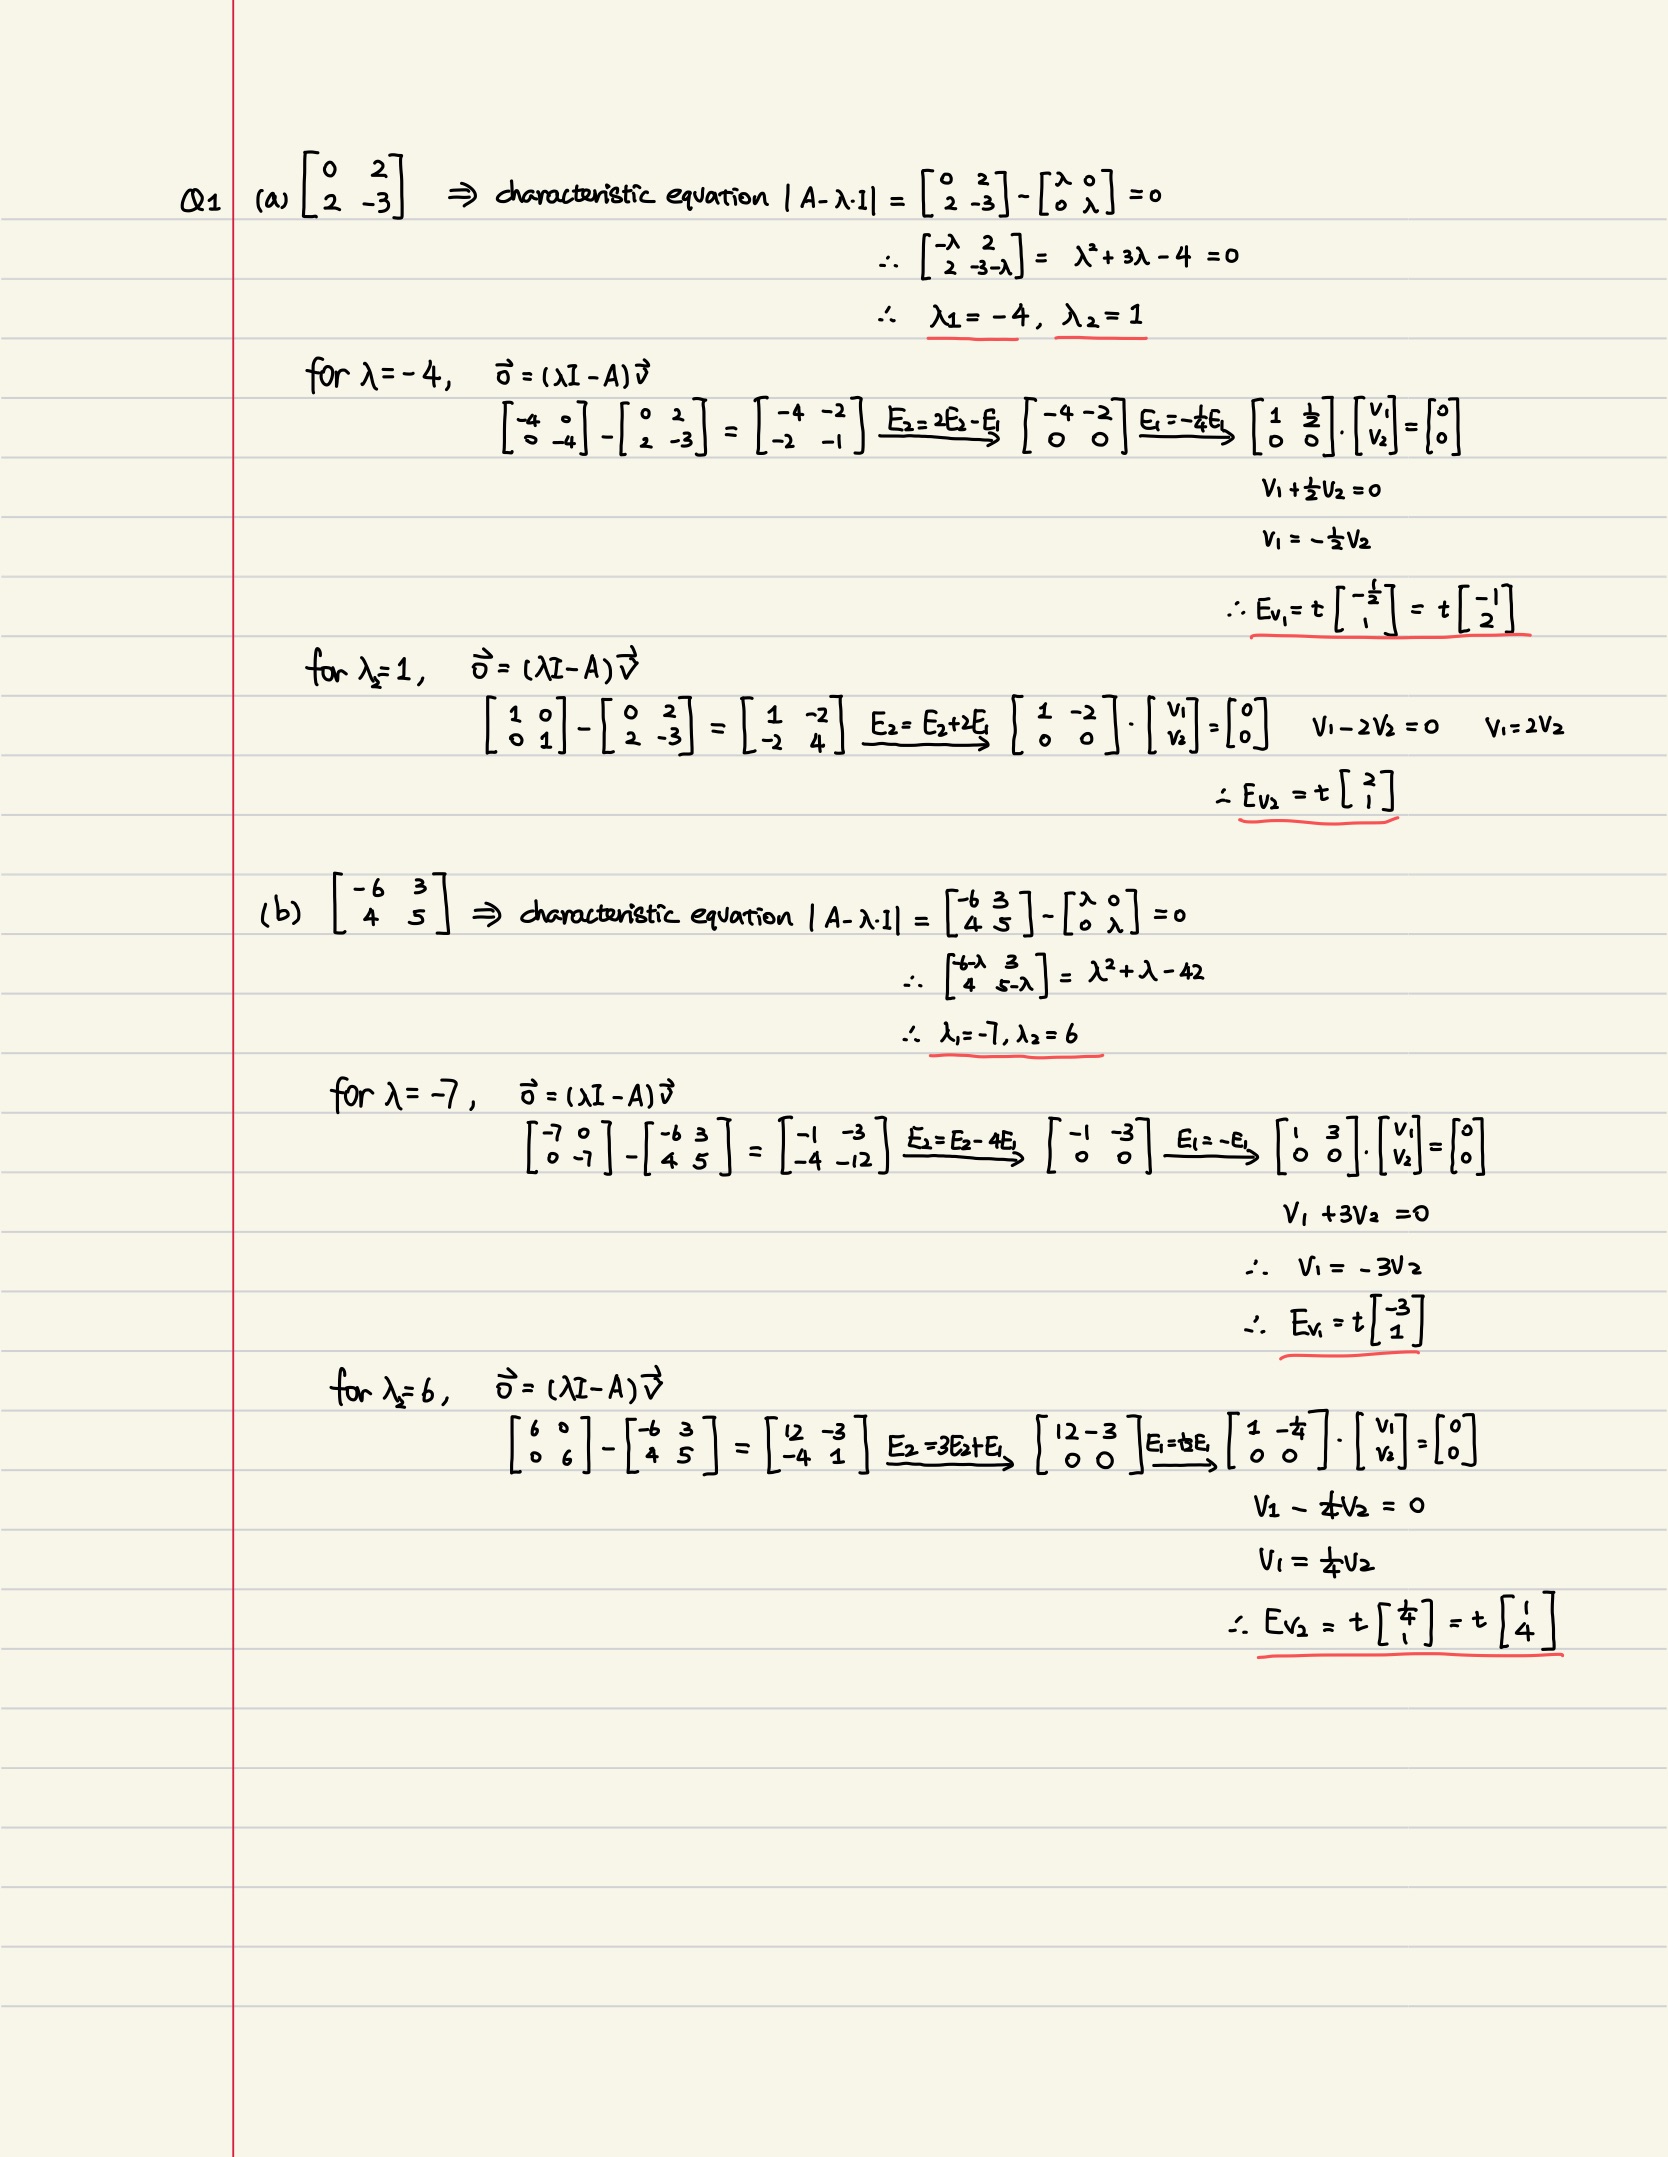 Q1 (a) [0 2; 2 -3] ⇒ characteristic equation |A-λ·I| = [0 2; 2 -3] - [λ 0; 0 λ] = 0
∴ [-λ 2; 2 -3-λ] = λ² + 3λ - 4 = 0
∴ λ1 = -4, λ2 = 1
for λ = -4, 0⃗ = (λI - A)v⃗
[-4 0; 0 -4] - [0 2; 2 -3] = [-4 -2; -2 -1] E2=2E2-E1 → [-4 -2; 0 0] E1=-1/4E1 → [1 1/2; 0 0]·[V1; V2] = [0; 0]
V1 + 1/2V2 = 0
V1 = -1/2V2
∴ Ev1 = t[-1/2; 1] = t[-1; 2]
for λ2=1, 0⃗ = (λI - A)v⃗
[1 0; 0 1] - [0 2; 2 -3] = [1 -2; -2 4] E2= E2+2E1 → [1 -2; 0 0]·[V1; V2] = [0; 0] V1 - 2V2 = 0 V1 = 2V2
∴ Ev2 = t[2; 1]
(b) [-6 3; 4 5] ⇒ characteristic equation |A-λ·I| = [-6 3; 4 5] - [λ 0; 0 λ] = 0
∴ [-6-λ 3; 4 5-λ] = λ² + λ - 42
∴ λ1=-7, λ2=6
for λ = -7, 0⃗ = (λI - A)v⃗
[-7 0; 0 -7] - [-6 3; 4 5] = [-1 -3; -4 -12] E2=E2-4E1 → [-1 -3; 0 0] E1=-E1 → [1 3; 0 0]·[V1; V2] = [0; 0]
V1 + 3V2 = 0
∴ V1 = -3V2
∴ Ev1 = t[-3; 1]
for λ2=6, 0⃗ = (λI - A)v⃗
[6 0; 0 6] - [-6 3; 4 5] = [12 -3; -4 1] E2=3E2+E1 → [12 -3; 0 0] E1=1/12E1 → [1 -1/4; 0 0]·[V1; V2] = [0; 0]
V1 - 1/4V2 = 0
V1 = 1/4V2
∴ Ev2 = t[1/4; 1] = t[1; 4]